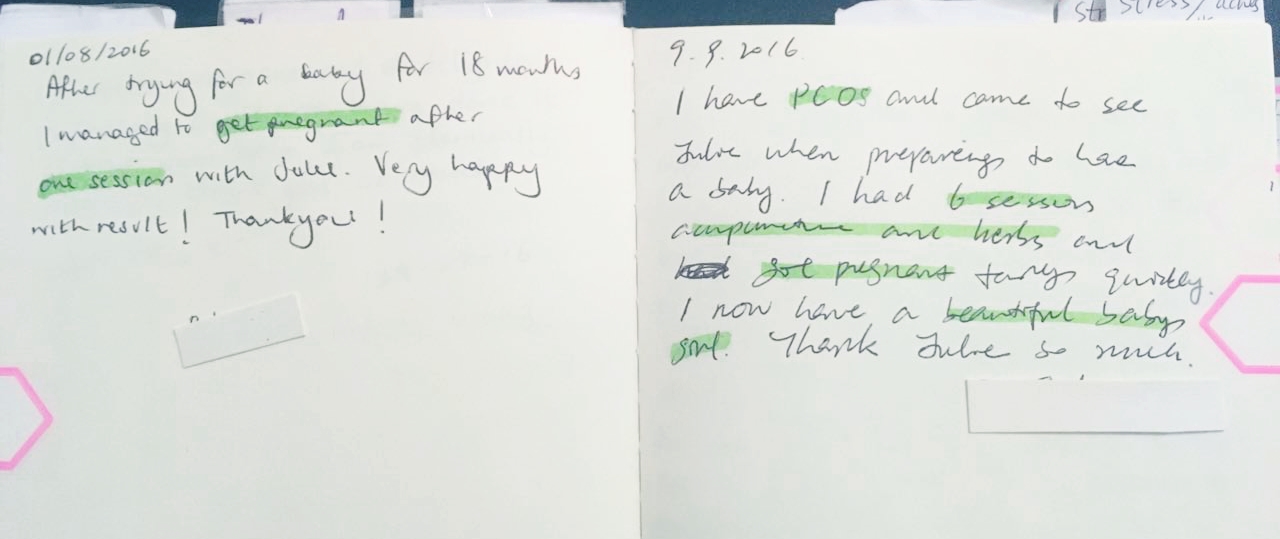 Stress/aches
01/08/2016
After trying for a baby for 18 months
I managed to get pregnant after
one session with Julie. Very happy
with result! Thankyou!
9.9.2016.
I have PCOS and came to see
Julie when preparing to have
a baby. I had 6 sessions
acupuncture and herbs and
got pregnant fairly quickly.
I now have a beautiful baby
girl. Thank Julie so much.